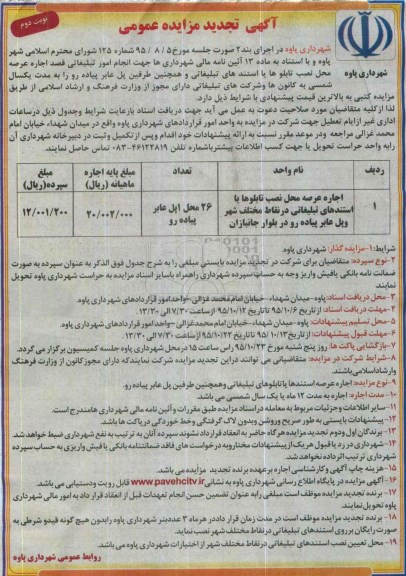 نوبت دوم
آگهی تجدید مزایده عمومی
شهرداری پاوه
شهرداری پاوه در اجرای بند ۲ صورت جلسه مورخ ۹۵/۸/۵ شماره ۱۲۵ شورای محترم اسلامی شهر
پاوه و با استناد به ماده ۱۳ آئین نامه مالی شهرداری ها جهت انجام امور تبلیغاتی قصد اجاره عرصه
محل نصب تابلو ها یا استند های تبلیغاتی و همچنین طرفین پل عابر پیاده رو را به مدت یکسال
شمسی به کانون ها وشرکت های تبلیغاتی دارای مجوز از وزارت فرهنگ و ارشاد اسلامی از طریق
مزایده کتبی به بالاترین قیمت پیشنهادی با شرایط ذیل دارد.
لذا از کلیه متقاضیان مورد صلاحیت دعوت به عمل می آید جهت دریافت اسناد بازعایت شرایط وجدول ذیل درساعات
اداری غیر ازایام تعطیل جهت شرکت در مزایده به واحد امور قراردادهای شهرداری پاوه واقع در میدان شهداء خیابان امام
محمد غزالی مراجعه ودر موعد مقرر نسبت به ارائه پیشنهادات خود اقدام وپس از تکمیل وثبت در دبیرخانه شهرداری آن
رابه واحد حراست تحویل یا جهت کسب اطلاعات بیشترباشماره تلفن ۴۶۱۲۲۸۱۹-۰۸۳ تماس حاصل نمایند.
ردیف نام واحد تعداد مبلغ پایه اجاره ماهیانه (ریال) مبلغ سپرده(ریال)
۱ اجاره عرصه محل نصب تابلوها یا استندهای تبلیغاتی درنقاط مختلف شهر وپل عابر پیاده رو در بلوار جانبازان ۲۶ محل اپل عابر پیاده رو ۲۰/۰۰۲/۰۰۰ ۱۲/۰۰۱/۲۰۰
شرایط:۱-مزایده گذار: شهرداری پاوه
۲-نوع سپرده: متقاضیان برای شرکت در تجدید مزایده بایستی مبلغی را به شرح جدول فوق الذکر به عنوان سپرده به صورت
ضمانت نامه بانکی یافیش واریز وجه به حساب سپرده شهرداری راهمراه باسایر اسناد مزایده به حراست شهرداری پاوه تحویل
نمایند.
۳-محل دریافت اسناد:پاوه-میدان شهداء -خیابان امام محمد غزالی-واحدامور قراردادهای شهرداری پاوه.
۴-مهلت دریافت اسناد: از تاریخ ۹۵/۱۰/۶ تا تاریخ ۹۵/۱۰/۱۲ از ساعت ۷/۳۰ الی ۱۳/۳۰
۵-محل تسلیم پیشنهادات: پاوه-میدان شهداء-خیابان امام محمدغزالی-واحدامور قراردادهای شهرداری پاوه.
۶-مهلت قبول پیشنهادات: از تاریخ ۹۵/۱۰/۱۳ تا تاریخ ۹۵/۱۰/۲۲ ازساعت ۷/۳۰ الی ۱۳/۳۰
۷-بازگشایی پاکت ها: روز پنج شنبه مورخ ۹۵/۱۰/۲۳ راس ساعت ۱۵ در محل شهرداری پاوه جلسه کمیسیون برگزار می گردد.
۸-شرایط شرکت در مزایده: متقاضیانی می توانند دراین تجدید مزایده شرکت نمایندکه دارای مجوزکانون از وزارت فرهنگ
وارشاداسلامی باشند.
۹-نوع مزایده: اجاره عرصه استندها یاتابلوهای تبلیغاتی وهمچنین طرفین پل عابر پیاده رو.
۱۰-مدت اجاره: اجاره به مدت ۱۲ ماه یا یک سال شمسی می باشد.
۱۱-سایر اطلاعات وجزئیات مربوط به معامله دراسناد مزایده طبق مقررات وآئین نامه مالی شهرداری هامندرج است.
۱۲-پیشنهادات بایستی به طور صریح وروشن وبدون لاک گرفتگی وخط خوردگی درپاکت ها باشد.
۱۳-برندگان اول ودوم تجدید مزایده هرگاه حاضر به انعقاد قرارداد نشوند سپرده آنان به ترتیب به نفع شهرداری ضبط خواهد شد.
۱۴-شهرداری در رد یا قبول هریک از پیشنهادات مختاروبه درخواست های فاقد ضمانتنامه بانکی یا فیش واریزی به حساب سپرده
شهرداری ترتیب اثرداده نخواهدشد.
۱۵-هزینه چاپ آگهی وکارشناسی اجاره برعهده برنده تجدید مزایده می باشد.
۱۶-آگهی مزایده در پایگاه اطلاع رسانی شهرداری پاوه به نشانی www.pavehcity.ir قابل رویت ودستیابی می باشد.
۱۷-برنده تجدید مزایده موظف است مبلغی رابه عنوان تضمین حسن انجام تعهدات قبل از انعقاد قرار داد به امور مالی شهرداری
پاوه تحویل نمایند.
۱۸-برنده تجدید مزایده موظف است در مدت زمان قرار داددر هرماه ۳ عددبنر شهرداری پاوه رابدون هیچ گونه قیدو شرطی به
صورت رایگان برروی استندهای تبلیغاتی درنقاط مختلف شهر نصب نماید.
۱۹-محل تعیین نصب استندهای تبلیغاتی درنقاط مختلف شهر از اختیارات شهرداری پاوه می باشد.
روابط عمومی شهرداری پاوه